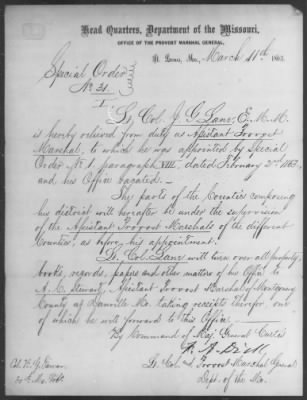 Head Quarters, Department of the Missouri,
OFFICE OF THE PROVOST MARSHAL GENERAL,
St. Louis, Mo., March 11th 1863.
Special Order
No. 31.
I
Lt. Col. J. G. Lane, E. M. M.
is hereby relieved from duty as Assistant Provost
Marshal, to which he was appointed by Special
Order No. 1. paragraph VIII, dated February 2d 1863,
and his Office vacated.—
The parts of the Counties composing
his district will hereafter be under the supervision
of the Assistant Provost Marshals of the different
Counties, as before his appointment.
Lt. Col. Lane will turn over all property,
books, records, papers and other matters of his Office to
A. C. Stewart, Assistant Provost Marshal of Montgomery
County at Danville Mo. taking receipts therefor, one
of which he will forward to this Office.
By Command of Maj. General Curtis
F. A. Dick
Lt. Col. & Provost Marshal General
Dept. of the Mo.
Col.
Mo. Vols.